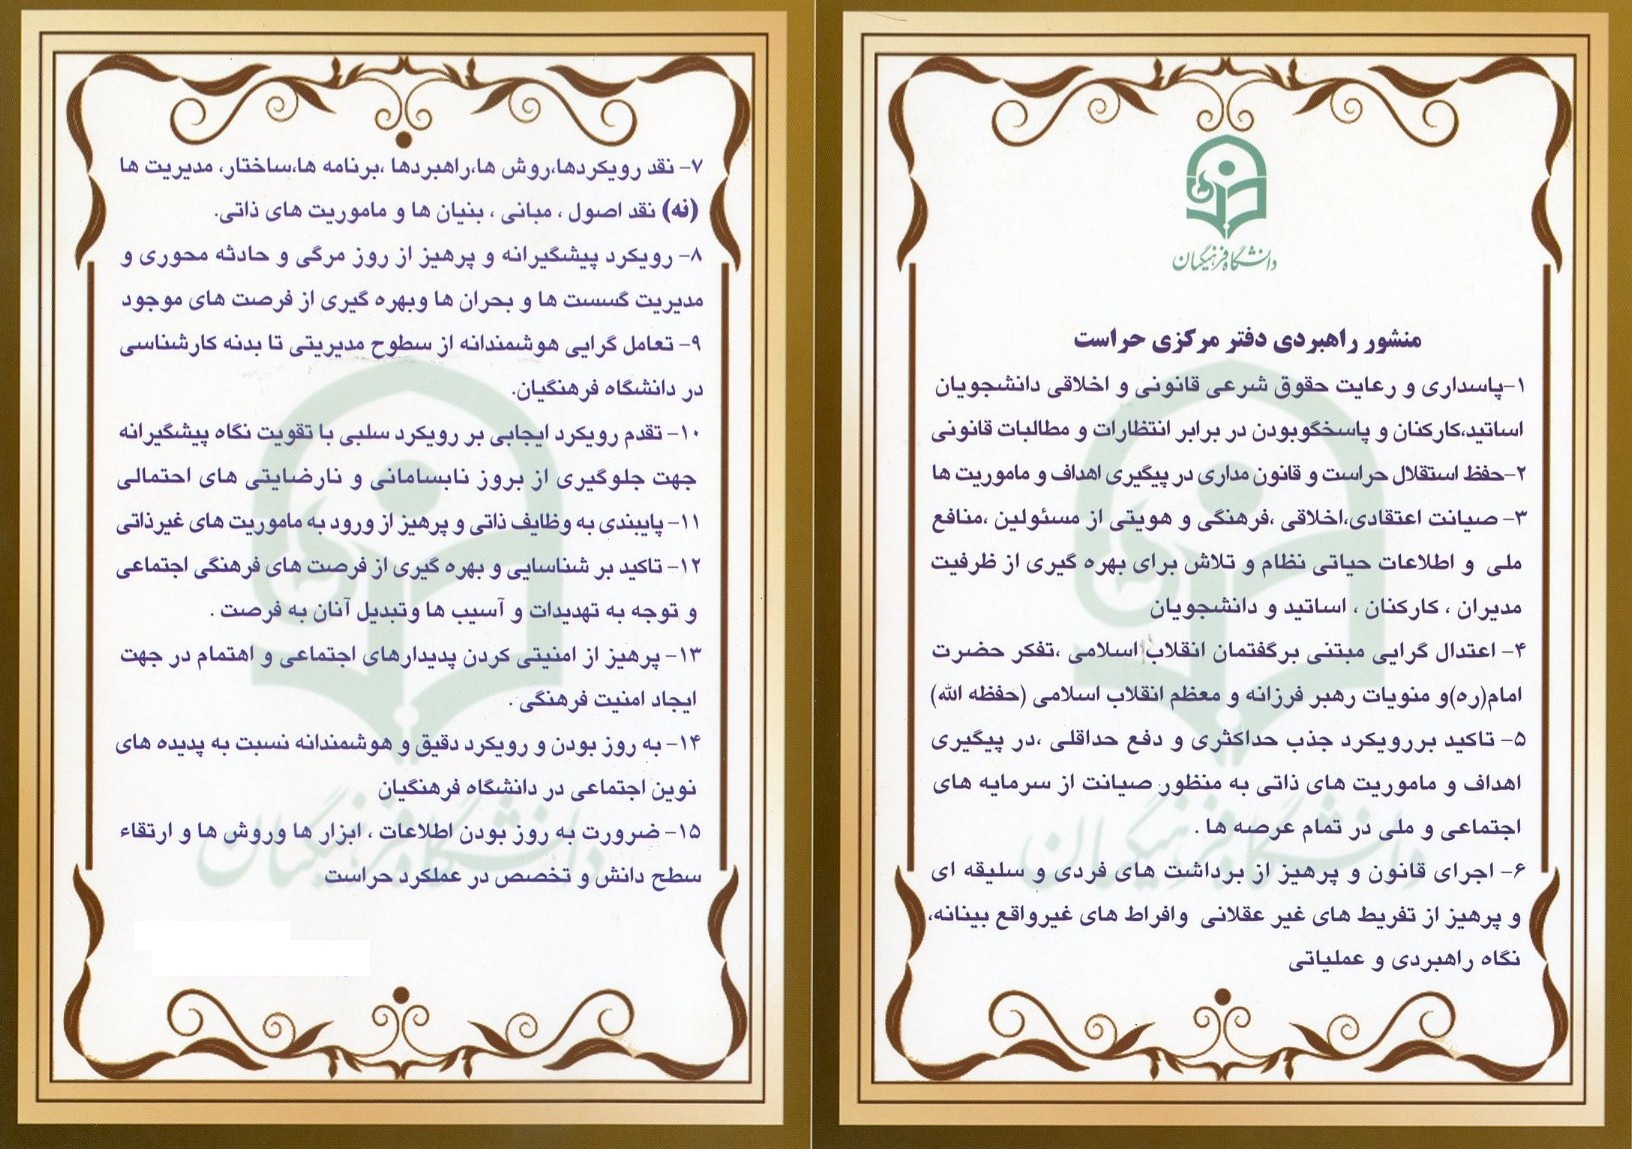 دانشگاه فرهنگیان
منشور راهبردی دفتر مرکزی حراست
۱-پاسداری و رعایت حقوق شرعی قانونی و اخلاقی دانشجویان
اساتید،کارکنان و پاسخگوبودن در برابر انتظارات و مطالبات قانونی
۲-حفظ استقلال حراست و قانون مداری در پیگیری اهداف و ماموریت ها
۳- صیانت اعتقادی،اخلاقی ،فرهنگی و هویتی از مسئولین ،منافع
ملی و اطلاعات حیاتی نظام و تلاش برای بهره گیری از ظرفیت
مدیران ، کارکنان ، اساتید و دانشجویان
۴- اعتدال گرایی مبتنی برگفتمان انقلاب اسلامی ،تفکر حضرت
امام(ره)و منویات رهبر فرزانه و معظم انقلاب اسلامی (حفظه الله)
۵- تاکید بررویکرد جذب حداکثری و دفع حداقلی ،در پیگیری
اهداف و ماموریت های ذاتی به منظور صیانت از سرمایه های
اجتماعی و ملی در تمام عرصه ها .
۶- اجرای قانون و پرهیز از برداشت های فردی و سلیقه ای
و پرهیز از تفریط های غیر عقلانی وافراط های غیرواقع بینانه،
نگاه راهبردی و عملیاتی
۷- نقد رویکردها،روش ها،راهبردها ،برنامه ها،ساختار، مدیریت ها
(نه) نقد اصول ، مبانی ، بنیان ها و ماموریت های ذاتی.
۸- رویکرد پیشگیرانه و پرهیز از روز مرگی و حادثه محوری و
مدیریت گسست ها و بحران ها وبهره گیری از فرصت های موجود
۹- تعامل گرایی هوشمندانه از سطوح مدیریتی تا بدنه کارشناسی
در دانشگاه فرهنگیان.
۱۰- تقدم رویکرد ایجابی بر رویکرد سلبی با تقویت نگاه پیشگیرانه
جهت جلوگیری از بروز نابسامانی و نارضایتی های احتمالی
۱۱- پایبندی به وظایف ذاتی و پرهیز از ورود به ماموریت های غیرذاتی
۱۲- تاکید بر شناسایی و بهره گیری از فرصت های فرهنگی اجتماعی
و توجه به تهدیدات و آسیب ها وتبدیل آنان به فرصت .
۱۳- پرهیز از امنیتی کردن پدیدارهای اجتماعی و اهتمام در جهت
ایجاد امنیت فرهنگی .
۱۴- به روز بودن و رویکرد دقیق و هوشمندانه نسبت به پدیده های
نوین اجتماعی در دانشگاه فرهنگیان
۱۵- ضرورت به روز بودن اطلاعات ، ابزار ها وروش ها و ارتقاء
سطح دانش و تخصص در عملکرد حراست